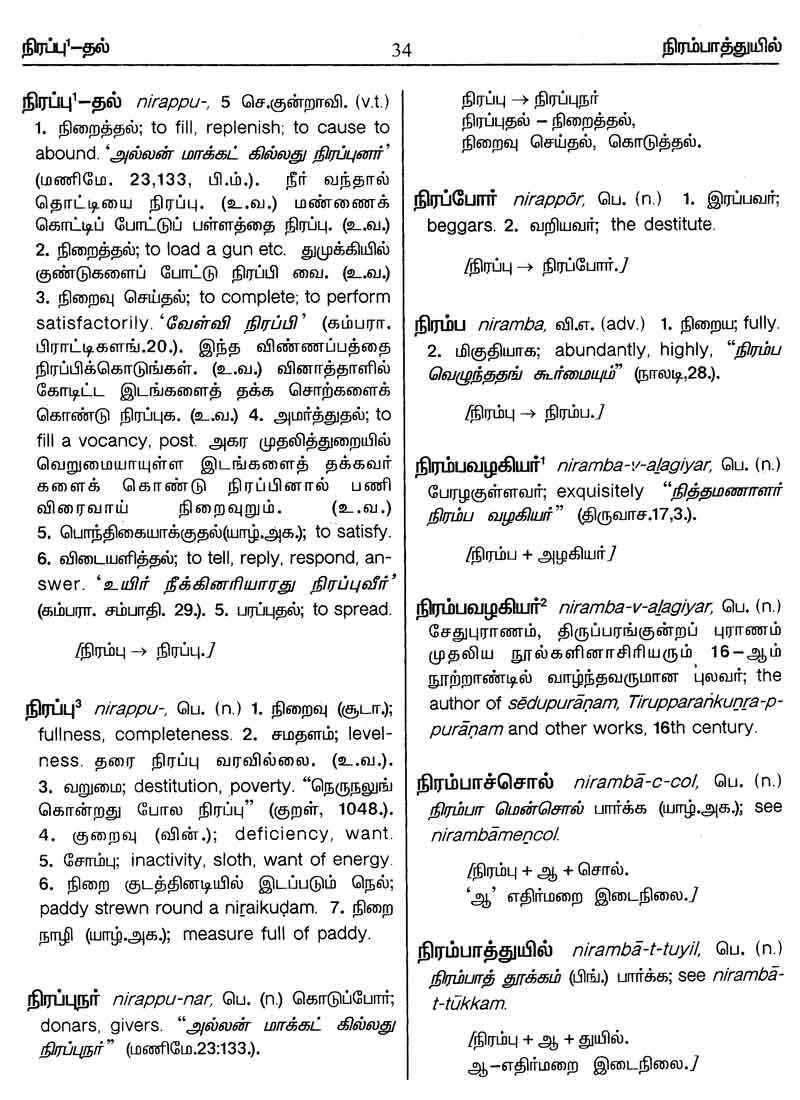 நிரப்பு¹–தல்
34
நிரம்பாத்துயில்
நிரப்பு¹–தல் nirappu-, 5 செ.குன்றாவி. (v.t.)
1. நிறைத்தல்; to fill, replenish; to cause to
abound. ‘அல்லன் மாக்கட் கில்லது நிரப்புனர்’
(மணிமே. 23,133, பி.ம்.). நீர் வந்தால்
தொட்டியை நிரப்பு. (உ.வ.) மண்ணைக்
கொட்டிப் போட்டுப் பள்ளத்தை நிரப்பு. (உ.வ.)
2. நிறைத்தல்; to load a gun etc. துமுக்கியில்
குண்டுகளைப் போட்டு நிரப்பி வை. (உ.வ.)
3. நிறைவு செய்தல்; to complete; to perform
satisfactorily. ‘வேள்வி நிரப்பி’ (கம்பரா.
பிராட்டிகளங்.20.). இந்த விண்ணப்பத்தை
நிரப்பிக்கொடுங்கள். (உ.வ.) வினாத்தாளில்
கோடிட்ட இடங்களைத் தக்க சொற்களைக்
கொண்டு நிரப்புக. (உ.வ.) 4. அமர்த்துதல்; to
fill a vocancy, post. அகர முதலித்துறையில்
வெறுமையாயுள்ள இடங்களைத் தக்கவர்
களைக் கொண்டு நிரப்பினால் பணி
விரைவாய் நிறைவுறும். (உ.வ.)
5. பொந்திகையாக்குதல்(யாழ்.அக.); to satisfy.
6. விடையளித்தல்; to tell, reply, respond, an-
swer. ‘உயிர் நீக்கினரியாரது நிரப்புவீர்’
(கம்பரா. சம்பாதி. 29.). 5. பரப்புதல்; to spread.
[நிரம்பு → நிரப்பு.]
நிரப்பு³ nirappu-, பெ. (n.) 1. நிறைவு (சூடா.);
fullness, completeness. 2. சமதளம்; level-
ness. தரை நிரப்பு வரவில்லை. (உ.வ.).
3. வறுமை; destitution, poverty. “நெருநலுங்
கொன்றது போல நிரப்பு” (குறள், 1048.).
4. குறைவு (வின்.); deficiency, want.
5. சோம்பு; inactivity, sloth, want of energy.
6. நிறை குடத்தினடியில் இடப்படும் நெல்;
paddy strewn round a niṟaikuḍam. 7. நிறை
நாழி (யாழ்.அக.); measure full of paddy.
நிரப்புநர் nirappu-nar, பெ. (n.) கொடுப்போர்;
donars, givers. “அல்லன் மாக்கட் கில்லது
நிரப்புநர்” (மணிமே.23:133.).
நிரப்பு → நிரப்புநர்
நிரப்புதல் – நிறைத்தல்,
நிறைவு செய்தல், கொடுத்தல்.
நிரப்போர் nirappōr, பெ. (n.) 1. இரப்பவர்;
beggars. 2. வறியவர்; the destitute.
[நிரப்பு → நிரப்போர்.]
நிரம்ப niramba, வி.எ. (adv.) 1. நிறைய; fully.
2. மிகுதியாக; abundantly, highly, “நிரம்ப
வெழுந்ததங் கூர்மையும்” (நாலடி,28.).
[நிரம்பு → நிரம்ப.]
நிரம்பவழகியர்¹ niramba-v-aḻagiyar, பெ. (n.)
பேரழகுள்ளவர்; exquisitely “நித்தமணாளர்
நிரம்ப வழகியர்” (திருவாச.17,3.).
[நிரம்ப + அழகியர்]
நிரம்பவழகியர்² niramba-v-aḻagiyar, பெ. (n.)
சேதுபுராணம், திருப்பரங்குன்றப் புராணம்
முதலிய நூல்களினாசிரியரும் 16–ஆம்
நூற்றாண்டில் வாழ்ந்தவருமான புலவர்; the
author of sēdupurāṇam, Tirupparaṅkuṉṟa-p-
purāṇam and other works, 16th century.
நிரம்பாச்சொல் nirambā-c-col, பெ. (n.)
நிரம்பா மென்சொல் பார்க்க (யாழ்.அக.); see
nirambāmeṉcol.
[நிரம்பு + ஆ + சொல்.
‘ஆ’ எதிர்மறை இடைநிலை.]
நிரம்பாத்துயில் nirambā-t-tuyil, பெ. (n.)
நிரம்பாத் தூக்கம் (பிங்.) பார்க்க; see nirambā-
t-tūkkam.
[நிரம்பு + ஆ + துயில்.
ஆ–எதிர்மறை இடைநிலை.]